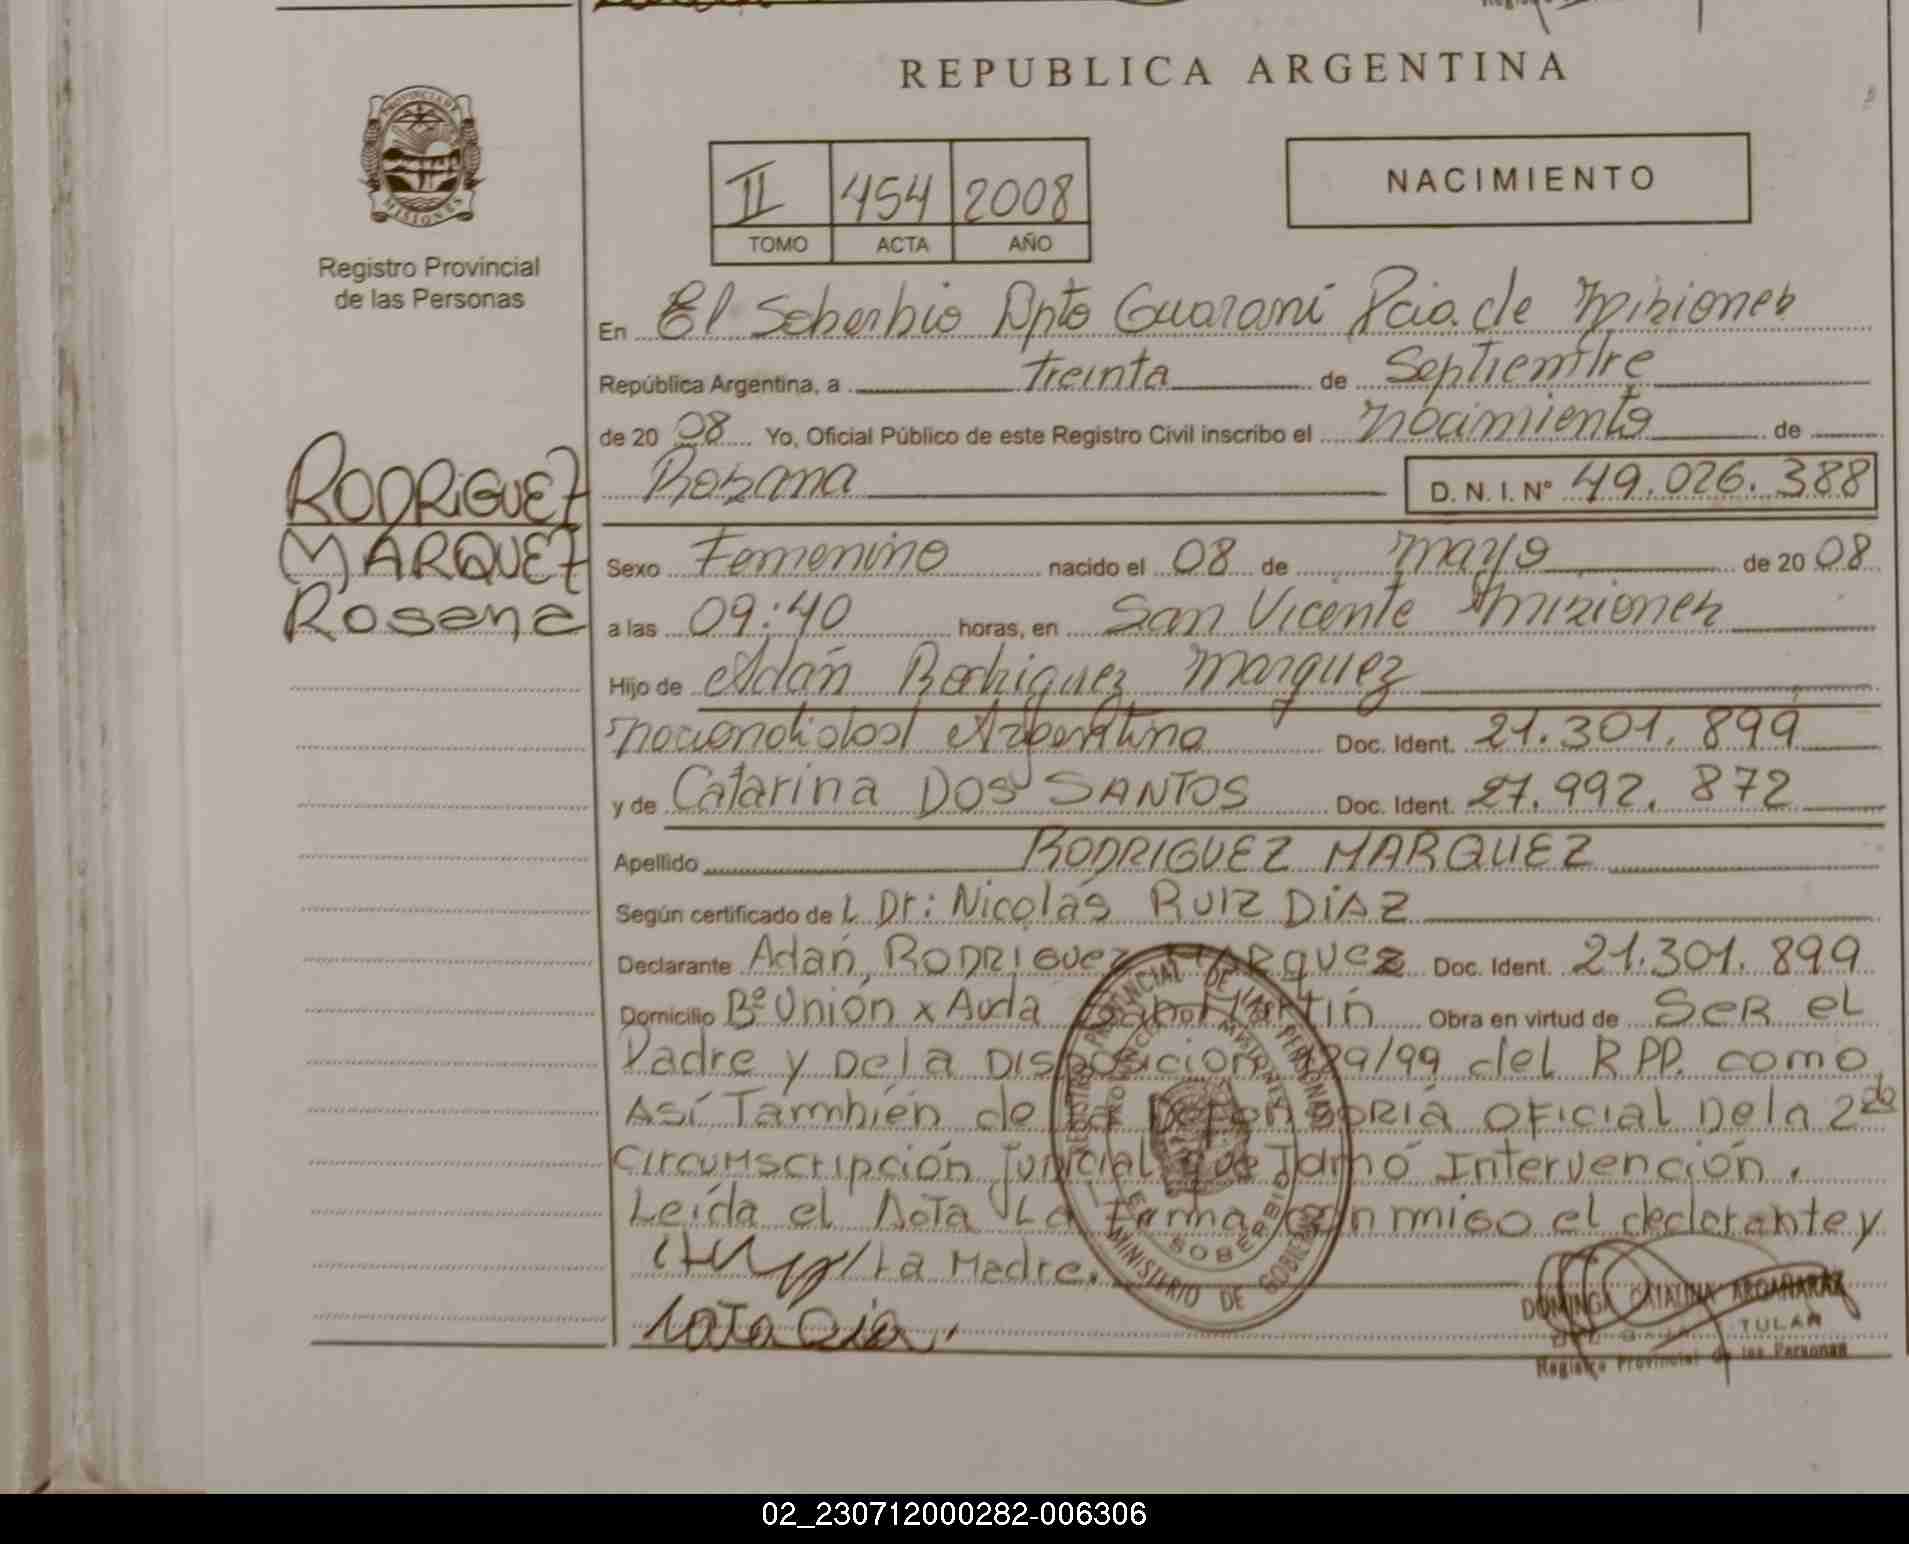 REPUBLICA ARGENTINA
PROVINCIA DE MISIONES
Registro Provincial
de las Personas
II 454 2008
TOMO ACTA AÑO
NACIMIENTO
En El Soberbio Dpto Guaraní Pcia. de Misiones
República Argentina, a treinta de Septiembre
de 2008 Yo, Oficial Público de este Registro Civil inscribo el nacimiento de
RODRIGUEZ
MARQUEZ
Rosana
Rosana D. N. I. N° 49.026.388
Sexo Femenino nacido el 08 de mayo de 2008
a las 09:40 horas, en San Vicente Misiones
Hijo de Adán Rodriguez Marquez
nacionalidad Argentina Doc. Ident. 21.301.899
y de Catarina DOS SANTOS Doc. Ident. 27.992.872
Apellido RODRIGUEZ MARQUEZ
Según certificado de L Dr: Nicolás RUIZ DiAZ
Declarante Adán RODRIGUEZ MARQUEZ Doc. Ident. 21.301.899
Domicilio Bº Unión x Avda San Martín Obra en virtud de SER el
Padre y De la DISposicion 989/99 del R.P.P. como
Así También de la Defensoria OFICIAL De la 2da
Circumscripción Judicial que Tomó Intervención.
Leída el Acta La Firma conmigo el declarante y
La Madre.
REGISTRO PROVINCIAL DE LAS PERSONAS
PROVINCIA DE MISIONES
EL SOBERBIO
MINISTERIO DE GOBIERNO
DOMINGA CATALINA ARGAÑARAZ
TULAR
Registro Provincial de las Personas
02_230712000282-006306